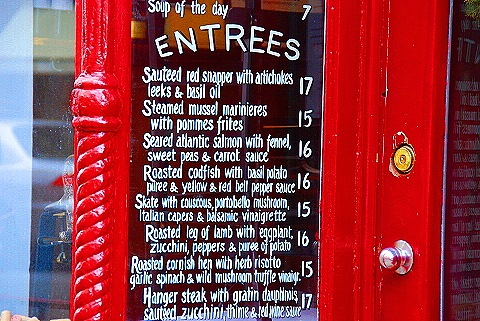 Soup of the day 7
ENTREES
Sauteed red snapper with artichokes
leeks & basil oil 17
Steamed mussel marinieres
with pommes frites 15
Seared atlantic salmon with fennel,
sweet peas & carrot sauce 16
Roasted codfish with basil potato
puree & yellow & red bell pepper sauce 16
Skate with couscous, portobello mushroom,
Italian capers & balsamic vinaigrette 15
Roasted leg of lamb with eggplant,
zucchini, peppers & puree of potato 16
Roasted cornish hen with herb risotto
garlic spinach & wild mushroom truffle vinaigr. 15
Hanger steak with gratin dauphinois
sauteed zucchini, thime & red wine sauce 17